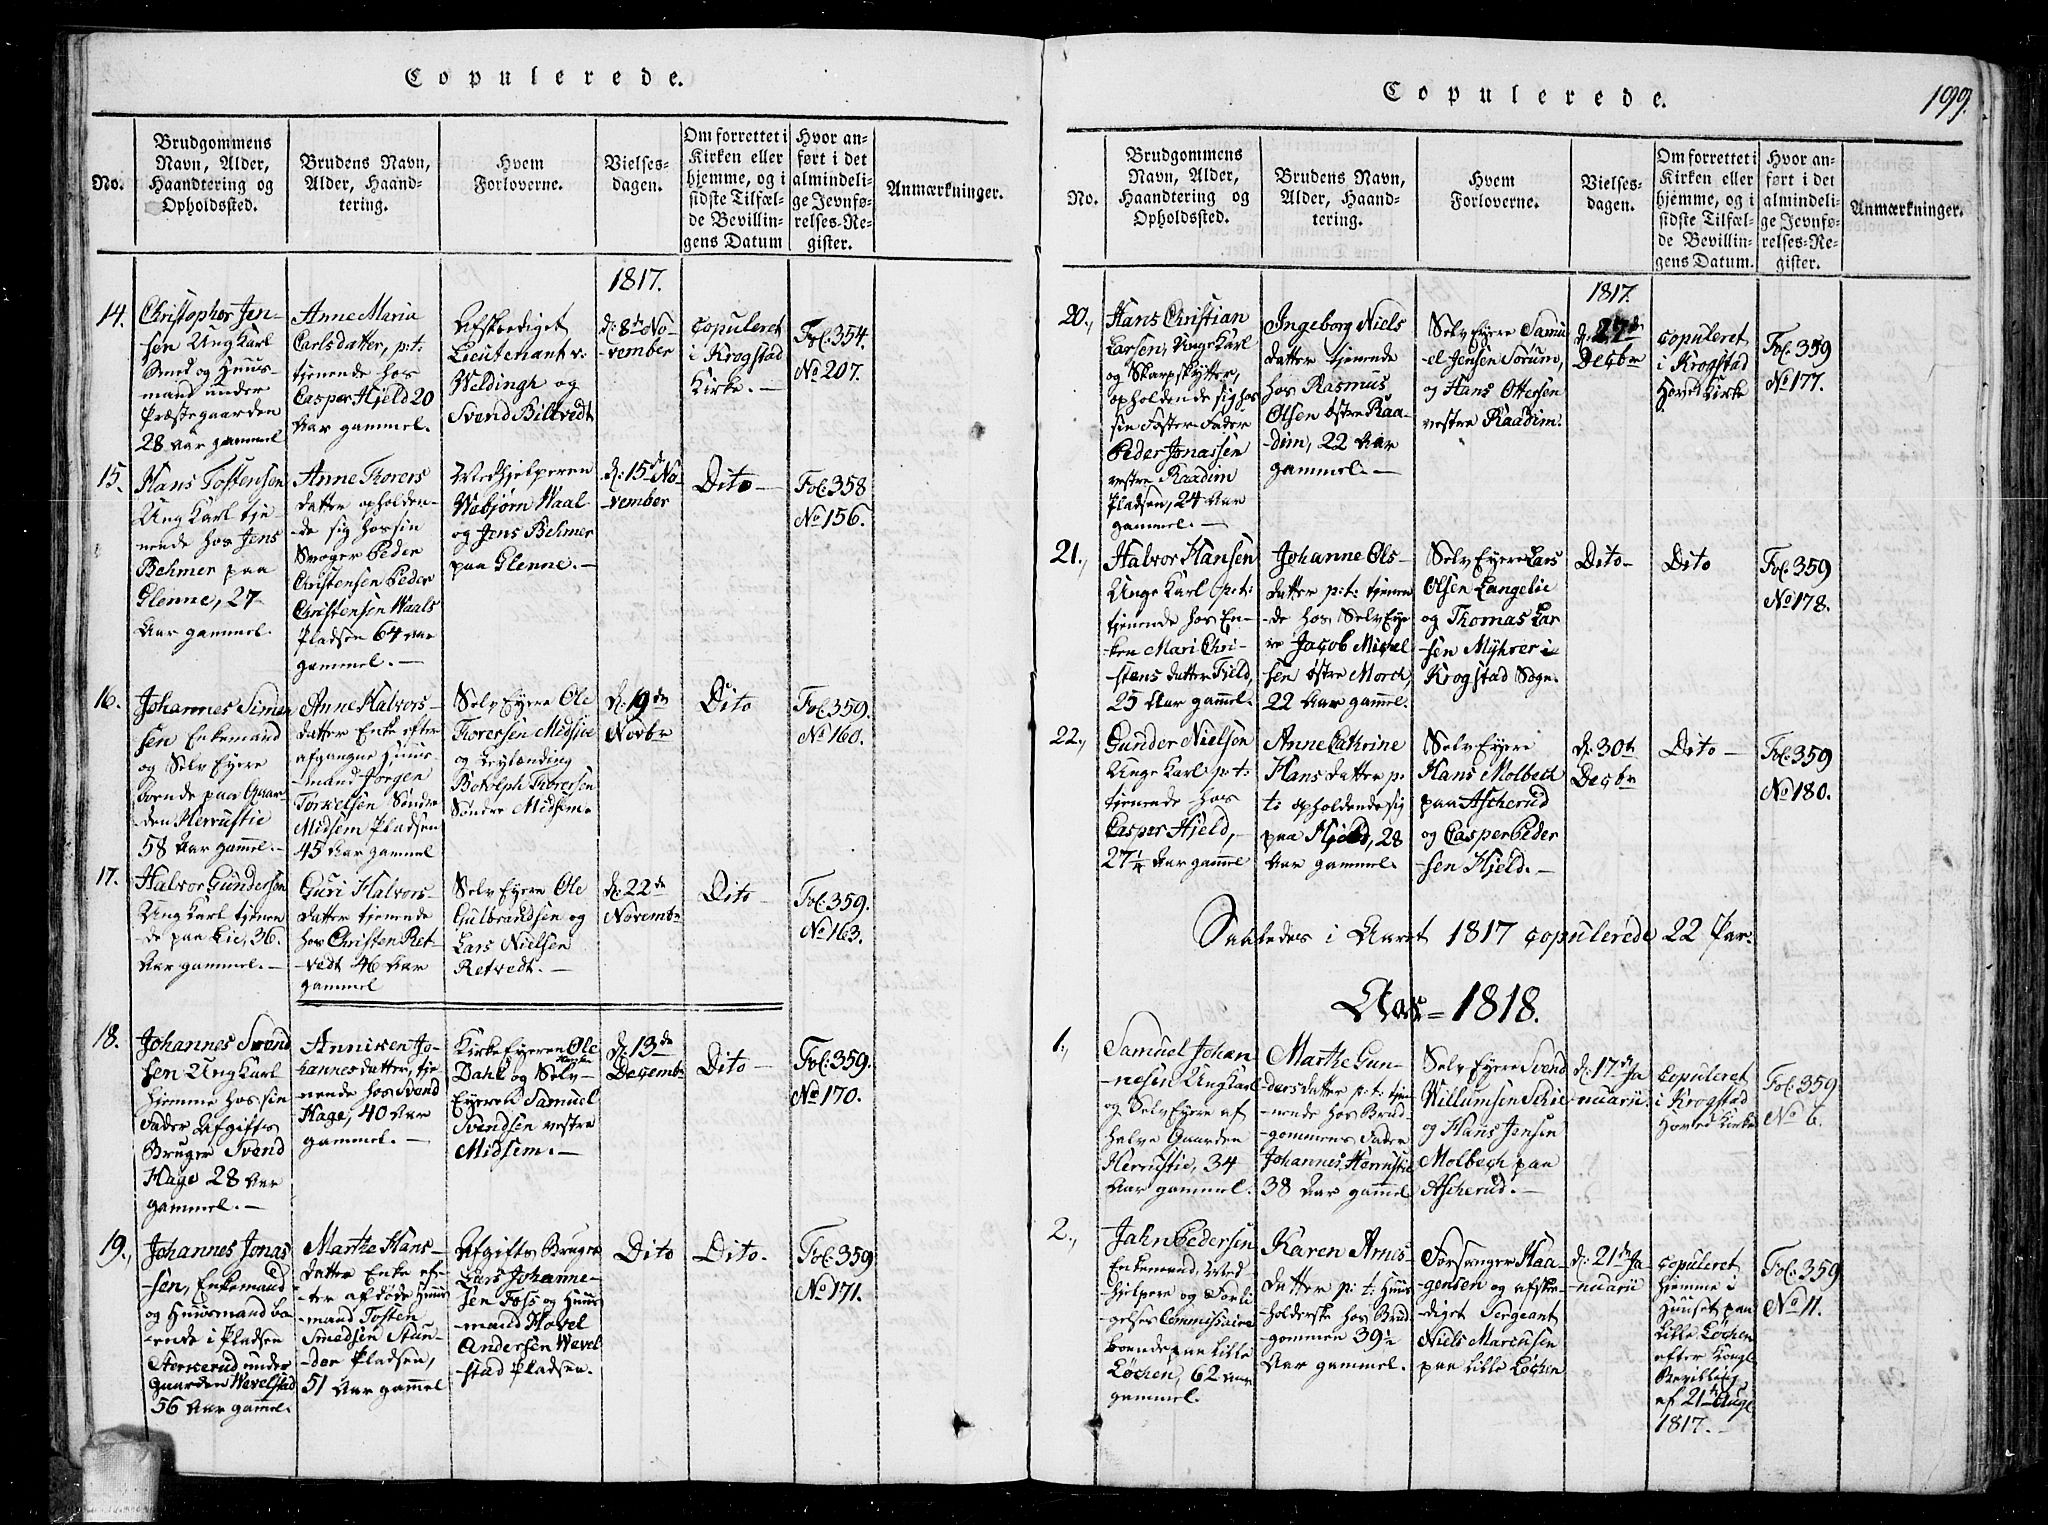 Copulerede.
No.
Brudgommens
Navn, Alder,
Haandtering og
Opholdssted.
Brudens Navn,
Alder, Haand-
tering.
Hvem
Forloverne.
Vielses-
dagen.
Om forrettet i
Kirken eller
hjemme, og i
sidste Tilfæl-
de Bevillin-
gens Datum
Hvor an-
ført i det
almindeli-
ge Jevnfø-
relses-Re-
gister.
Anmærkninger.
1817.
14.
Christopher Jen-
sen Ung Karl
Smed og Huus-
mand under
Præstegaarden
28 Aar gammel
Anne Maria
Carlsdatter, p:t:
tjenende hos
Casper Hjeld 20
Aar gammel.
Afskediget
Lieutenant v:
Weldingh og
Svend Biltvedt
d: 8de No-
vember
copuleret
i Krogstad
Kirke. —
Fol: 354.
No 207.
15.
Hans Tostensen
Ung Karl tje-
nende hos Jens
Behmer paa
Glenne, 27
Aar gammel.
Anne Thorers
datter opholden-
de sig hos sin
Svoger Peder
Christensen Peder
Christensen Waals
Pladsen 64 Aar
gammel. —
Medhjelperen
Webjørn Waal
og Jens Behmer
paa Glenne. —
d: 15de No-
vember
Dito —
Fol: 358
No 156.
16.
Johannes Simen
sen Enkemand
og Selv Eyere
boende paa Gaar-
den Herrustie
58 Aar gamel. —
Anne Halvors-
datter Enke efter
afgangne Huus-
mand Jørgen
Torkelsen Søndre
Midsem Pladsen
45 Aar gammel
Selv Eyere Ole
Thoresen Midsie
og Leylænding
Botolph Thoresen
Søndre Midsem.
d: 19de
Novbr
Dito
Fol: 359.
No 160.
17.
Halvor Gundersen
Ung Karl tjenen
de paa Lie, 36.
Aar gammel. —
Guri Halvors-
datter tjenende
hos Christen Ret-
vedt 46 Aar
gammel
Selv Eyere Ole
Gulbrandsen og
Lars Nielsen
Retvedt. —
d: 22de
Novembr
Dito —
Fol: 359.
No 163.
18.
Johannes Svend
sen Ung Karl
hjemme hos sin
Fader Afgifts
Bruger Svend
Hage 28 Aar
gammel. —
Annixen Jo-
hannesdatter, tje-
nende hos Svend
Hage, 40 Aar
gammel. —
Kirke Eyeren Ole
Hansen
Dahl og Selv-
Eyeren Samuel
Svendsen vestre
Midsem. —
d: 13de
Decembr
Dito —
Fol: 359.
No 170.
19.
Johannes Jonas
sen, Enkemand
og Huusmand bo-
ende i Pladsen
under
Gaarden Wevelstad
56 Aar gamel.
Marthe Hans-
datter Enke ef-
ter afdøde Huus
mand Tosten
Smedsen Stun-
der Pladsen,
51 Aar gamel
Afgifts Bruger
Lars Johanne-
sen Foss og Huus
mand Hovel
Andersen Wevel
stad Pladsen.
Dito
Dito.
Fol: 359
No 171.
Copulerede.
199.
No.
Brudgommens
Navn, Alder,
Haandtering og
Opholdssted.
Brudens Navn,
Alder, Haand-
tering.
Hvem
Forloverne.
Vielses-
dagen.
Om forrettet i
Kirken eller
hjemme, og i
sidste Tilfæl-
de Bevillin-
gens Datum.
Hvor an-
ført i det
almindeli-
ge Jevnfø-
relses-Re-
gister.
Anmærkninger.
1817.
20.,
Hans Christian
Larsen, Unge Karl
og Skarpskytter,
opholdende sig hos
sin Foster-Fader
Peder Jonassen
vestre Raadim
Pladsen, 24 Aar
gammel. —
Ingeborg Niels
datter tjenende
hos Rasmus
Olsen østre Raa-
dim, 22 Aar
gammel. —
Selv Eyere Samu
el Jensen Sørum,
og Hans Ottersen
vestre Raadim.
d: 27de
Decbr
copuleret
i Krogstad
Hoved Kirke
Fol: 359
No 177.
21.,
Halvor Hansen
Unge Karl (p:t:
tjenende hos En-
ken Mari Chri-
stens datter Fjeld,
25 Aar gammel.
Johanne Ols-
datter p:t: tjenen
de hos Selv Eye
re Jacob Michel
sen østre Morch,
22 Aar gamel.
Selv Eyere Lars
Olsen Langelie
og Thomas Lar
sen Myhrer i
Krogstad Sogn.
Dito —
Dito
Fol: 359
No 178.
22.,
Gunder Nielsen
Unge Karl p:t:
tjenende hos
Casper Hjeld,
27¼ Aar gamel
Anne Cathrine
Hans datter p:
t: opholdende sig
paa Hjeld, 28
Aar gammel.
Selv Eyere
Hans Molbech
paa Ascherud
og Casper Peder
sen Hjeld. —
d: 30t
Decbr
Dito —
Fol: 359
No 180.
Saaledes i Aaret 1817 copulerede 22 Par.
Aar = 1818.
1.,
Samuel Johan
nesen Ung Karl
og Selv Eyere af
halve Gaarden
Herrustie, 34
Aar gammel.
Marthe Gun-
ders datter p:t: tje
nende hos Brud-
gommens Fader
Johannes Herrustie
38 Aar gamel
Selv Eyere Svend
Willumsen Schie
og Hans Jensen
Molbech paa
Ascherud. —
d: 17de Ja
nuarii
copuleret
i Krogstad
Hoved Kirke
Fol: 359
No 6.
2.,
Jahn Pedersen
Enkemand, Med
hjelper og Forli
gelses Commissaire
boende paa Lille
Løchen, 62 Aar
gammel.
Karen Arnes
datter p: t: Huus
holderske hos Brud
gommen 39½
Aar gammel.
Forsanger Haa-
gensen og afske-
diget Sergeant
Niels Marcusen
paa Lille Løchen
d: 21de Ja-
nuarii
copuleret
hjemme i
Huuset paa
Lille Løchen
efter Kongl:
Bevilling
af 21de Aug:
1817. —
Fol: 359
No 11.